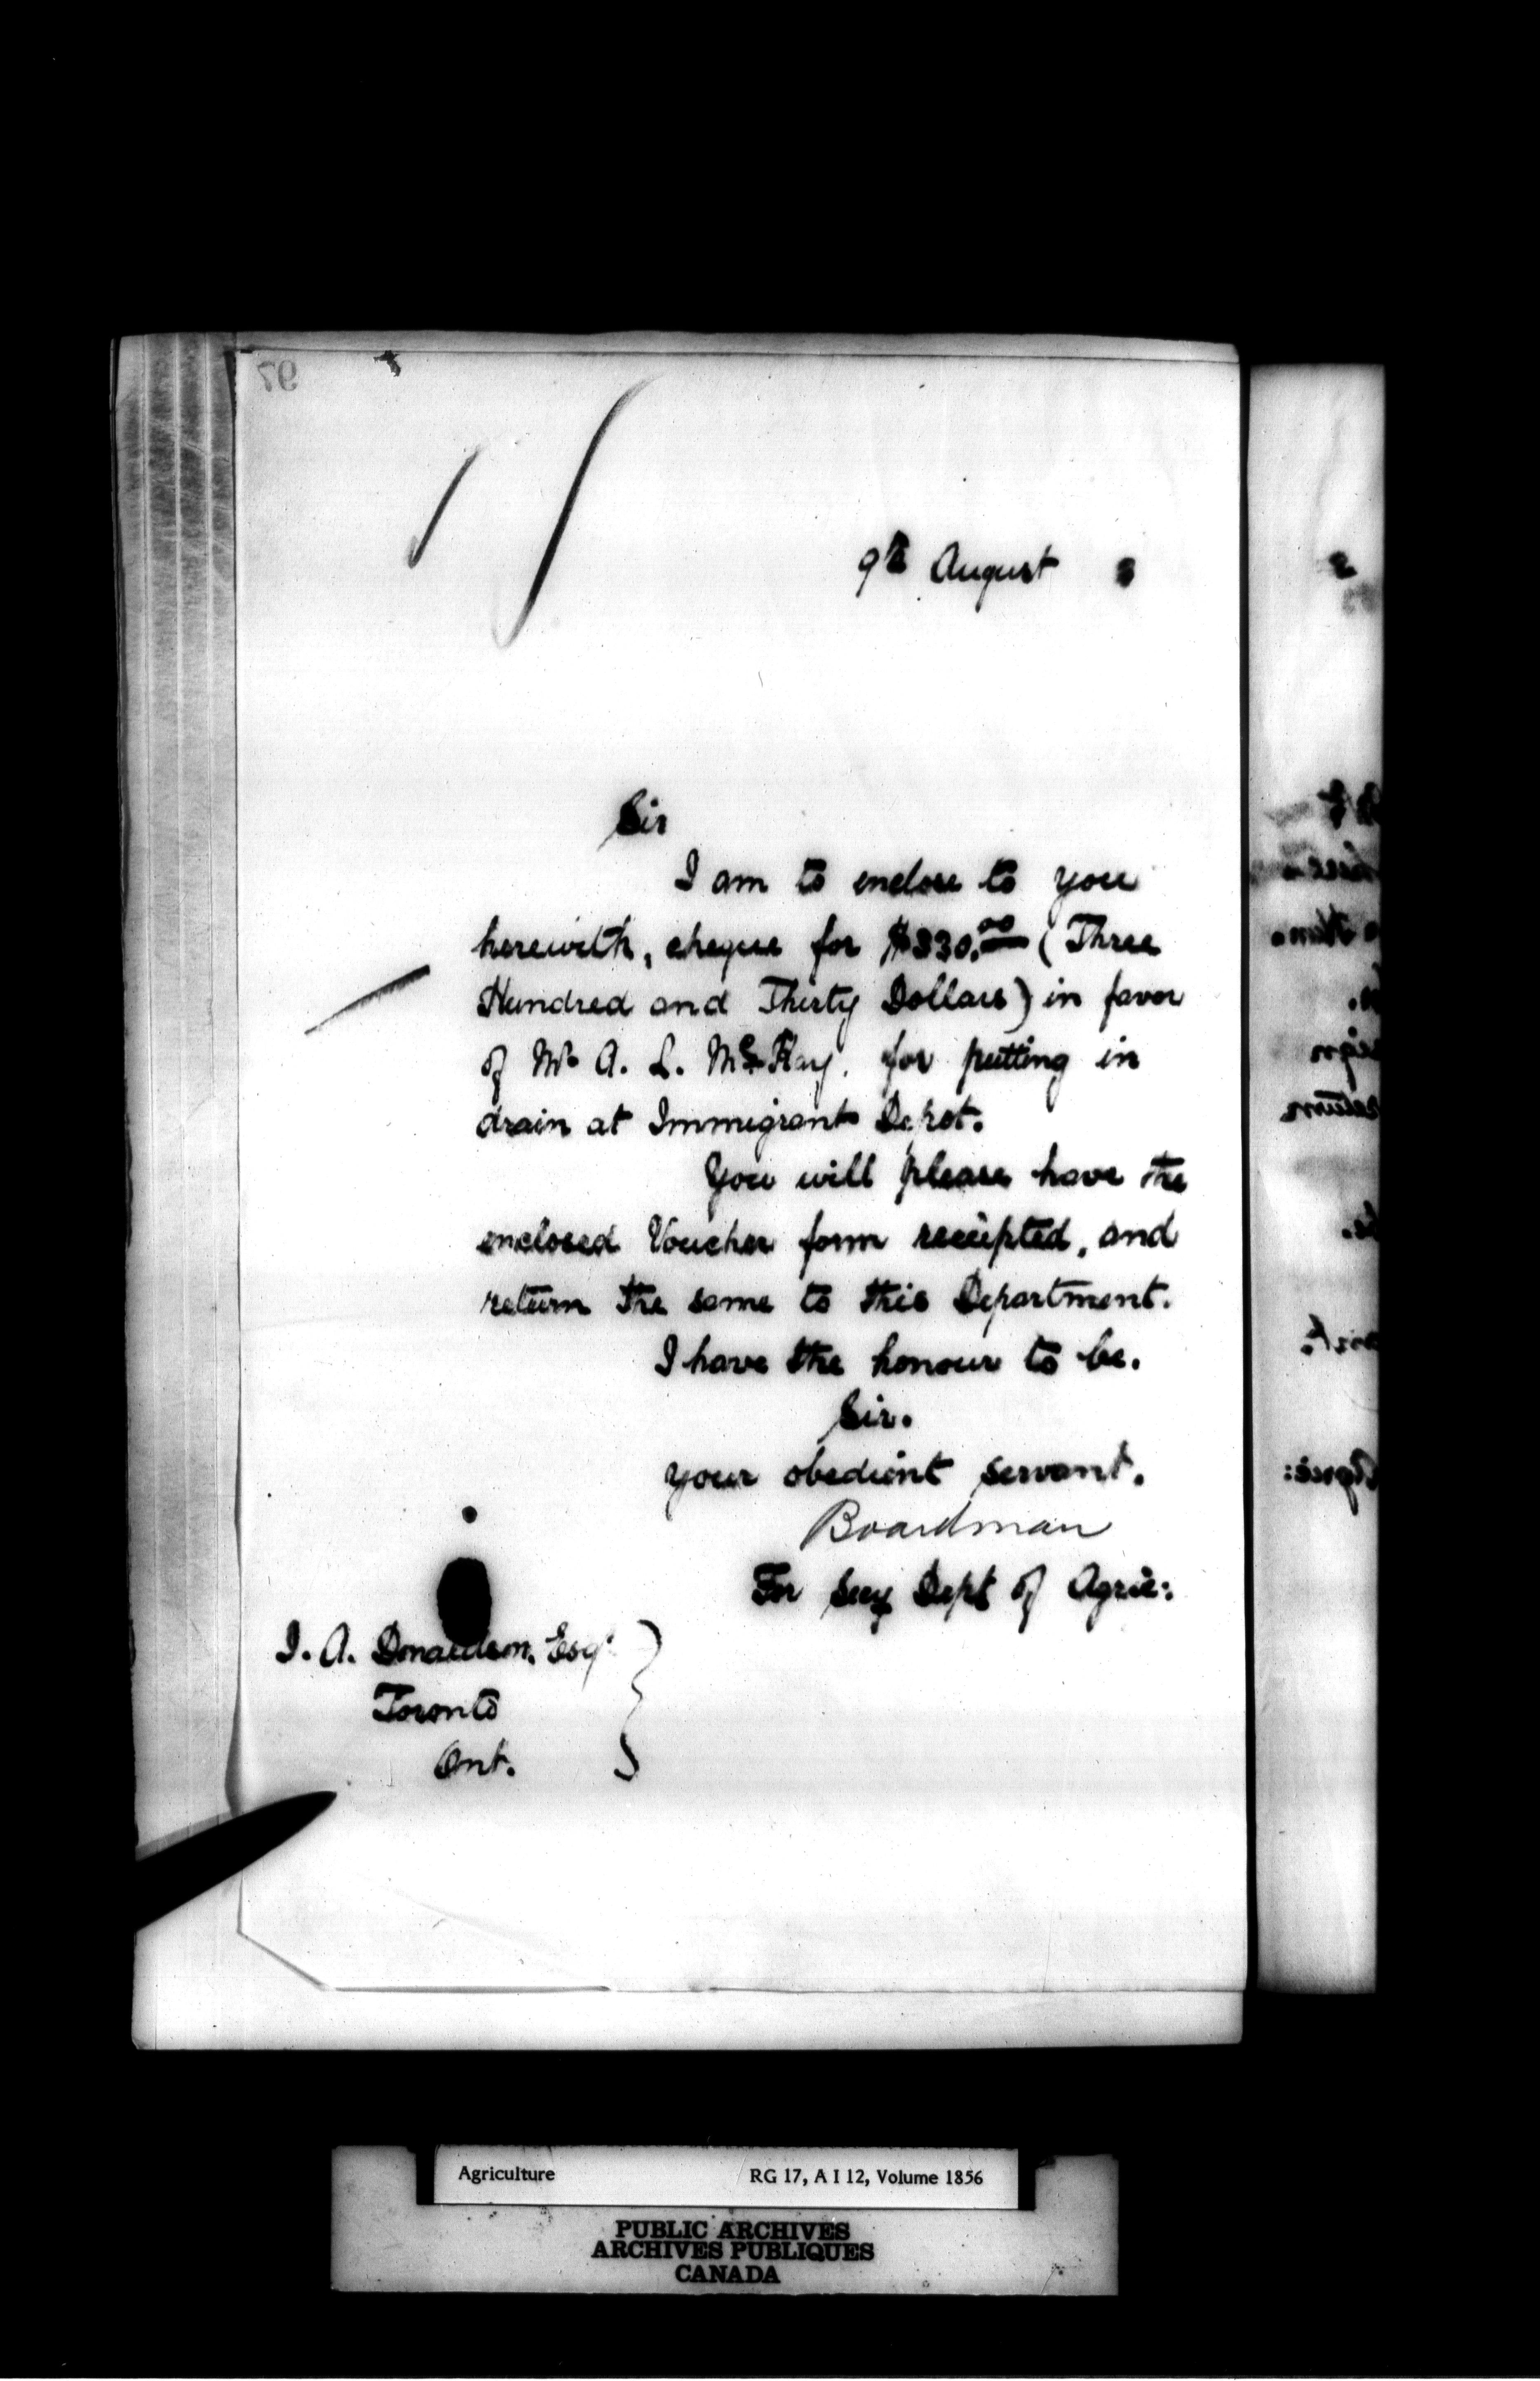 97
9th August 3
Sir
I am to enclose to you
herewith, cheque for $330.00 (Three
Hundred and Thirty Dollars) in favor
of Mr A. L. McKay, for putting in
drain at Immigrant Depot.
You will please have the
enclosed Voucher form receipted, and
return the same to this Department.
I have the honour to be.
Sir.
your obedient servant.
Boardman
For Secy Dept of Agric:
J. A. Donaldson, Esqr
Toronto
Ont.
Agriculture RG 17, A I 12, Volume 1856
PUBLIC ARCHIVES
ARCHIVES PUBLIQUES
CANADA